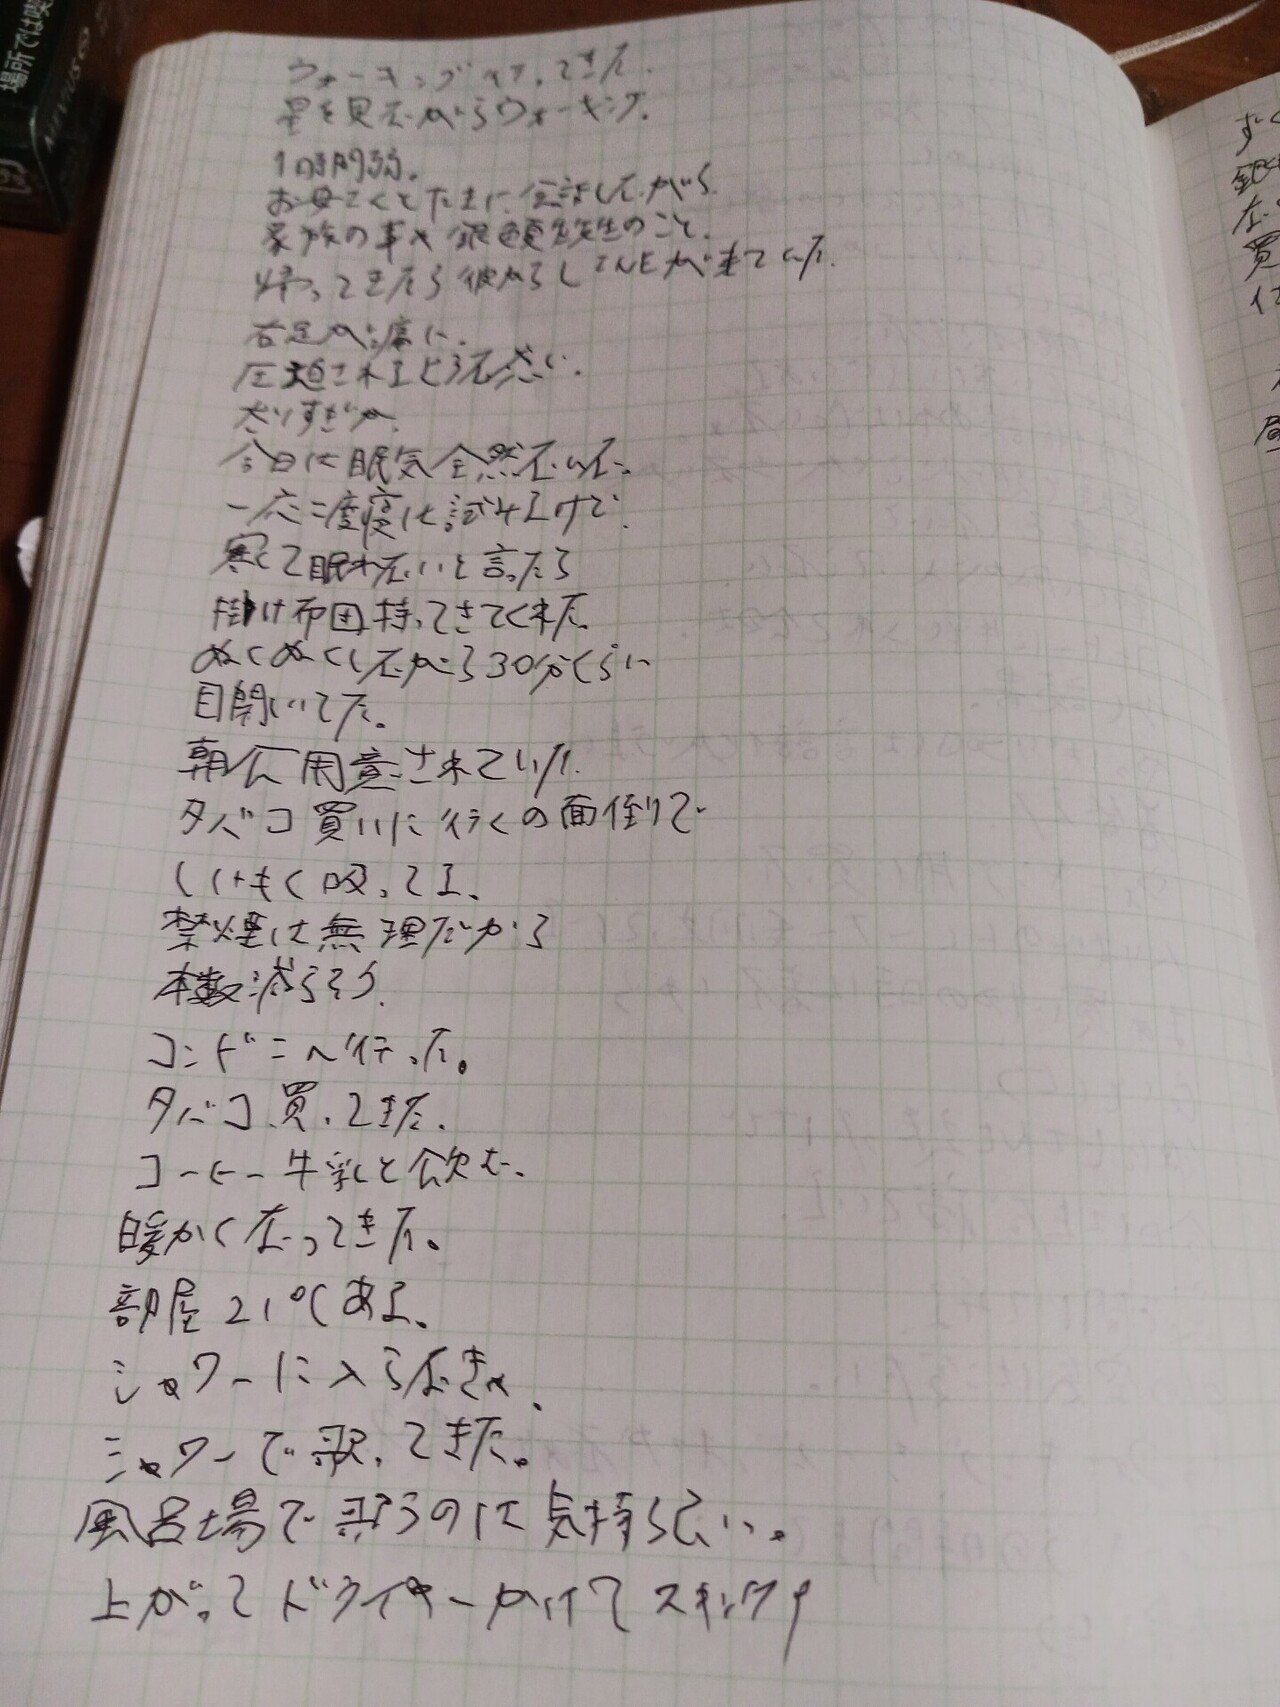 場所では喫
ウォーキング行ってきた。
星を見ながらウォーキング。
1時間弱。
お母さんとたまに会話しながら
家族の事や先生のこと。
帰ってきたら彼からLINEが来ていた。
右足が痛い。
圧迫されるような感じ。
太りすぎか。
今日は眠気全然ないな。
一応二度寝は試みるけど。
寒くて眠れないと言ったら
掛け布団持ってきてくれた。
ぬくぬくしながら30分くらい
目開いてた。
朝食用意されていた。
タバコ買いに行くの面倒で
しけもく吸ってる。
禁煙は無理だから
本数減らそう。
コンビニへ行った。
タバコ買ってきた。
コーヒー牛乳と飲む。
暖かくなってきた。
部屋21℃ある。
シャワーに入らなきゃ。
シャワーで歌ってきた。
風呂場で歌うのは気持ちいい。
上がってドライヤーかけてスキンケア